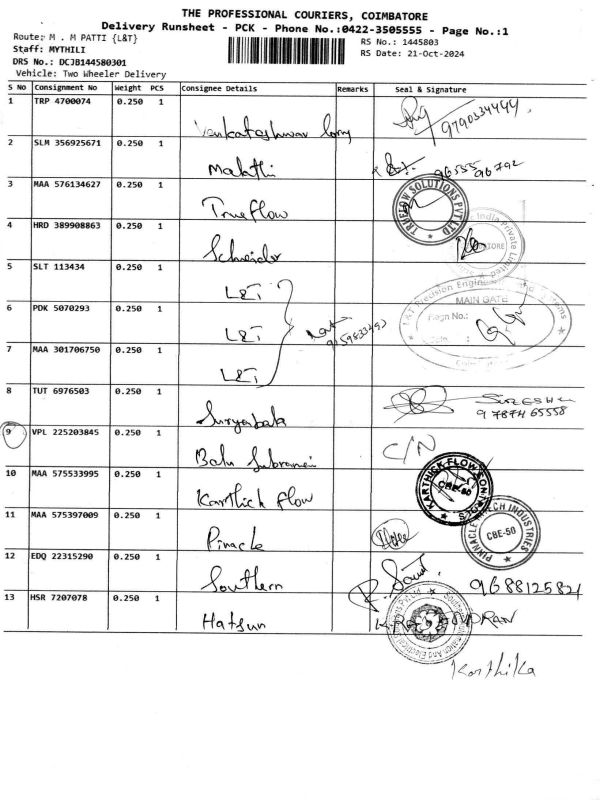 THE PROFESSIONAL COURIERS, COIMBATORE
Delivery Runsheet - PCK - Phone No.:0422-3505555 - Page No.:1
Route: M . M PATTI {L&T}
RS No.: 1445803
Staff: MYTHILI
RS Date: 21-Oct-2024
DRS No.: DCJB144580301
Vehicle: Two Wheeler Delivery
S No Consignment No Weight PCS Consignee Details Remarks Seal & Signature
1 TRP 4700074 0.250 1
Venkateshwar
2 SLM 356925671 0.250 1
Malathi 96555 96792
3 MAA 576134627 0.250 1
Trueflow TRUFLOW SOLUTIONS PVT LTD
4 HRD 389908863 0.250 1
Schneider India Private Limited STORE
5 SLT 113434 0.250 1
L&T
6 PDK 5070293 0.250 1
L&T
L&T Precision MAIN GATE
Regn No.:
7 MAA 301706750 0.250 1
L&T
8 TUT 6976503 0.250 1
97874 65558
9 VPL 225203845 0.250 1
Balu C/N
10 MAA 575533995 0.250 1
Karthick flow KARTHICK FLOW CBE-50
11 MAA 575397009 0.250 1
Pinacle PINNACLE TECH INDUSTRIES CBE-50
12 EDQ 22315290 0.250 1
Southern
13 HSR 7207078 0.250 1
Hatsun
Karthika